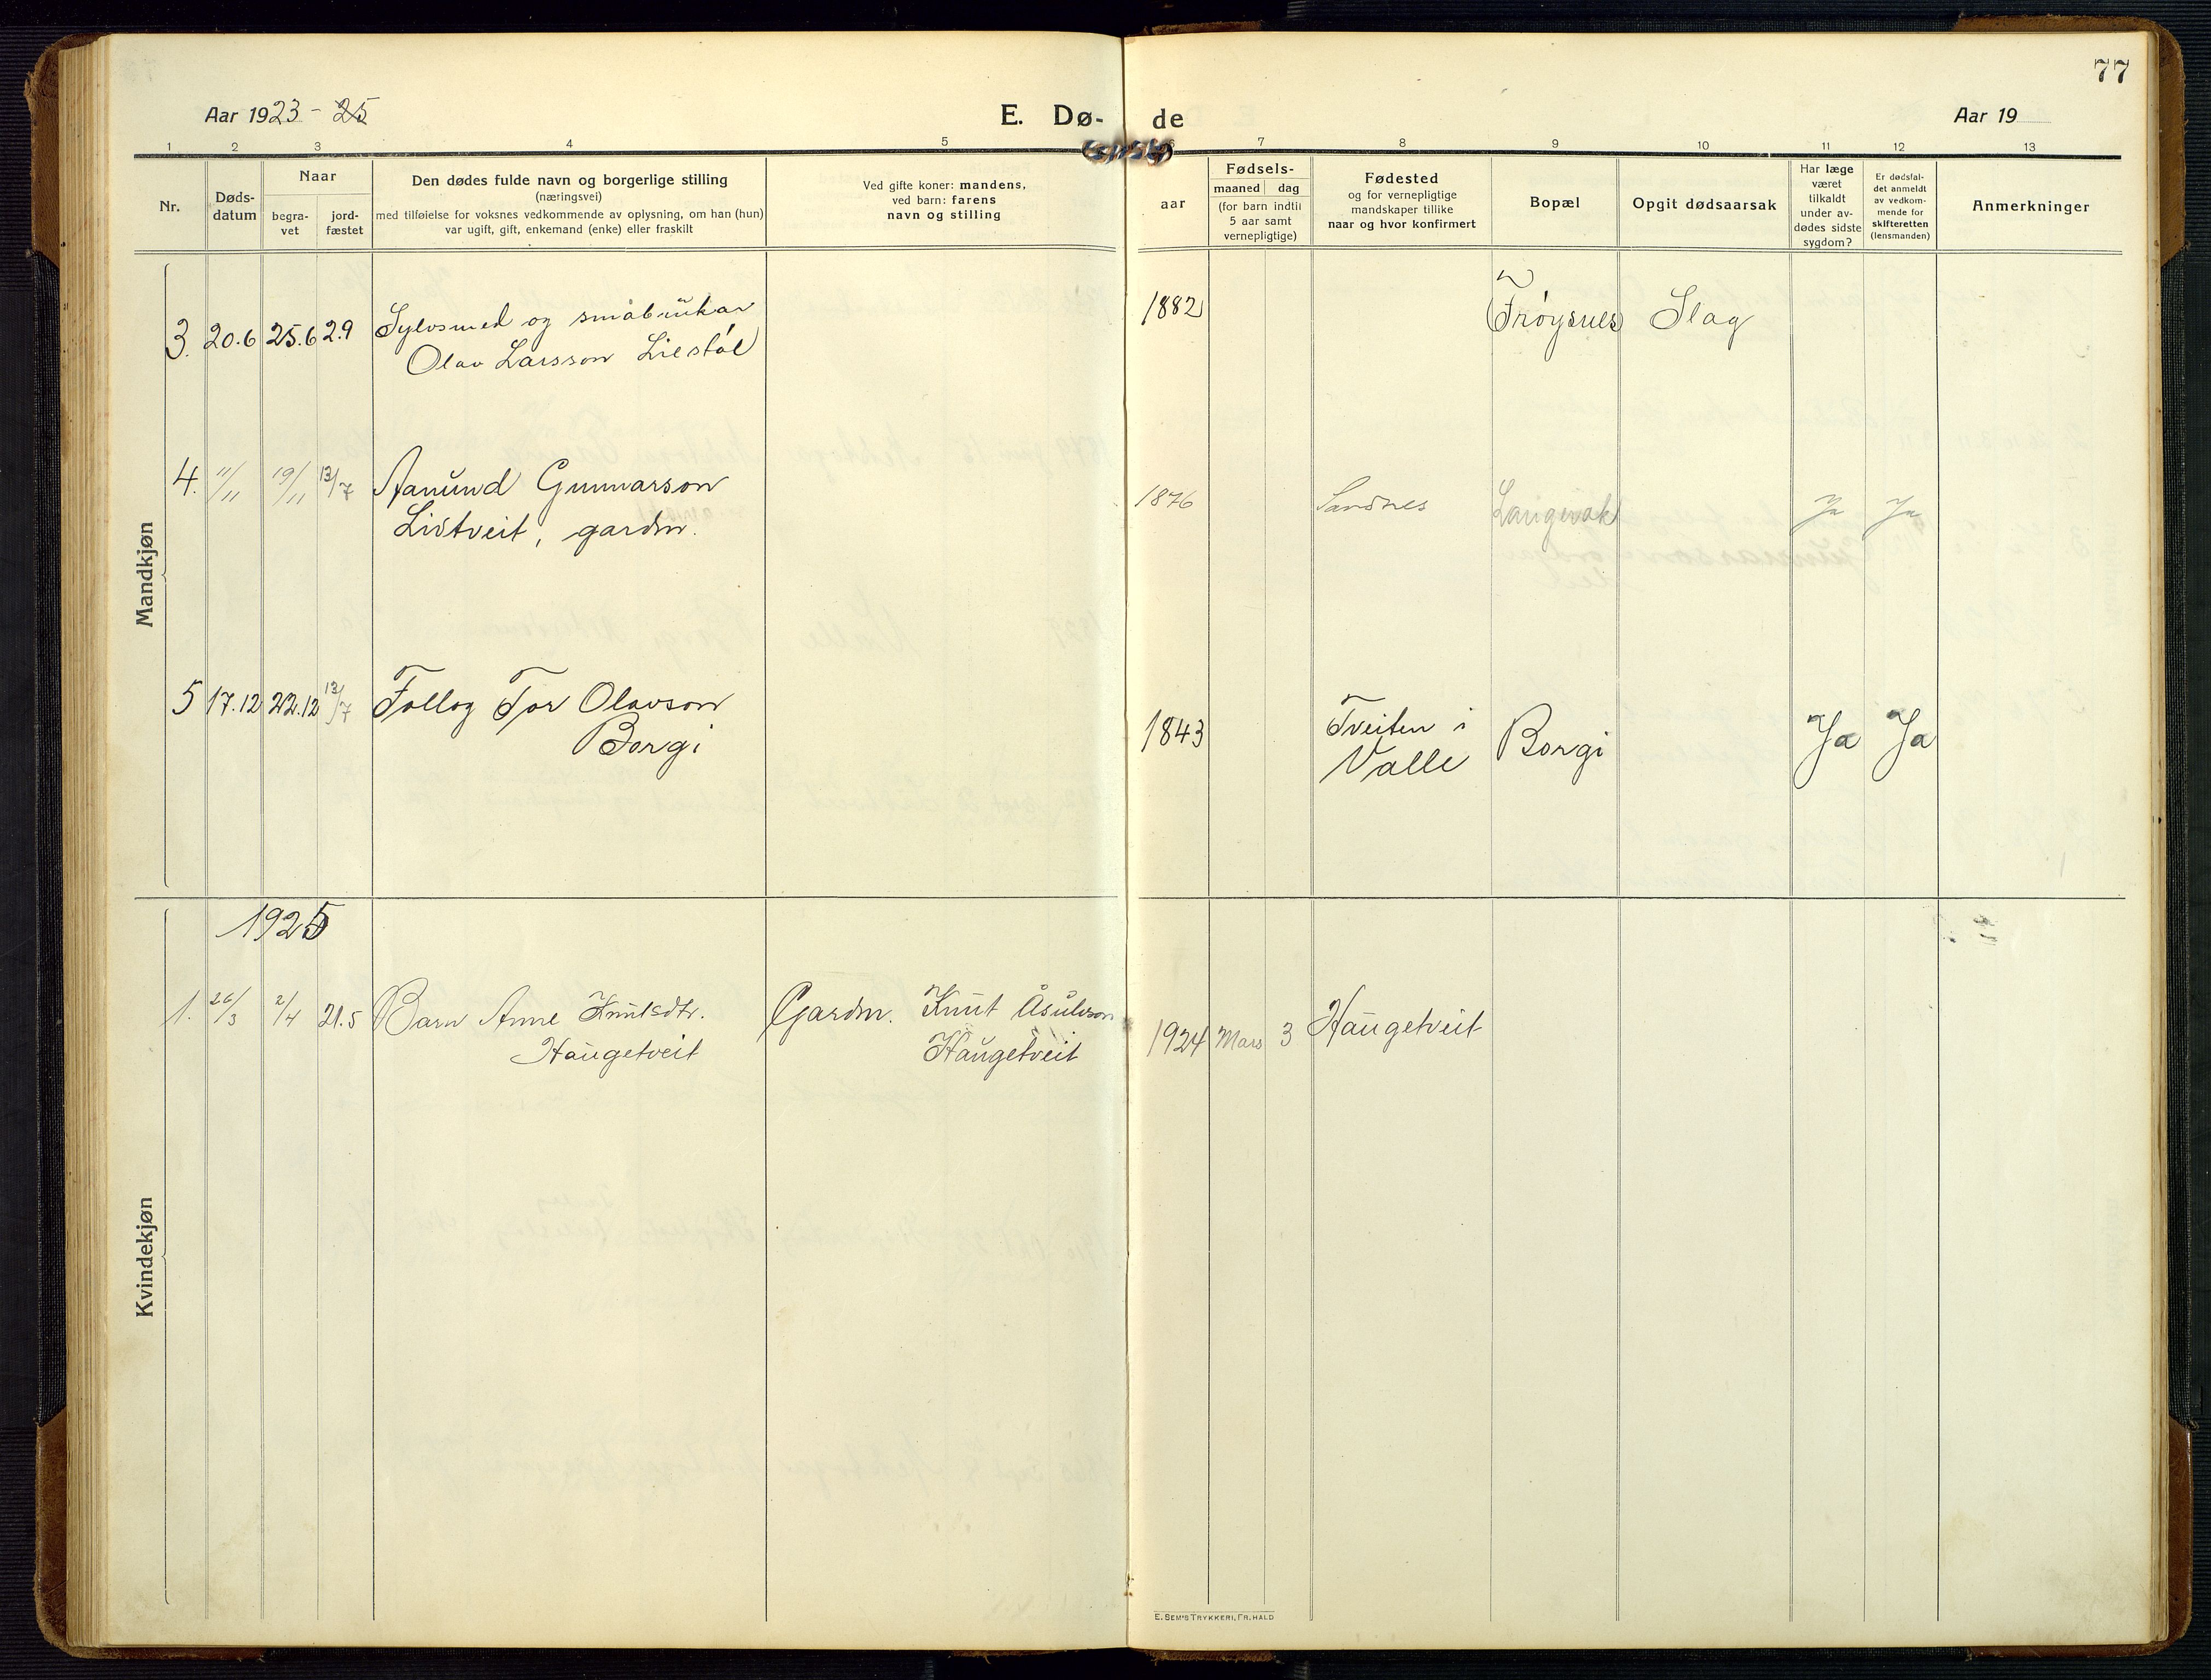 77
Aar 1923 - 25
E. Dø-
de
Aar 19
1 2 3 4 5 6 7 8 9 10 11 12 13
Nr.
Døds-
datum
Naar
begra-
vet
jord-
fæstet
Den dødes fulde navn og borgerlige stilling
(næringsvei)
med tilføielse for voksnes vedkommende av oplysning, om han (hun)
var ugift, gift, enkemand (enke) eller fraskilt
Ved gifte koner: mandens,
ved barn: farens
navn og stilling
aar
Fødsels-
maaned dag
(for barn indtil
5 aar samt
vernepligtige)
Fødested
og for vernepligtige
mandskaper tillike
naar og hvor konfirmert
Bopæl
Opgit dødsaarsak
Har læge
været
tilkaldt
under av-
dødes sidste
sygdom?
Er dødsfal-
det anmeldt
av vedkom-
mende for
skifteretten
(lensmanden)
Anmerkninger
Mandkjøn
3. 20.6 25.6 2.9 Sylvsmed og småbrukar
Olav Larsson Liestøl
1882 Frøysnes Slag
4. 11/11 19/11 13/7 Aanund Gunnarson
Listveit, gardm.
1876 Sandnes Langeid Ja Ja
5 17.12 22.12 13/7 Follog Tor Olavson
Borgi
1843 Tveiten i
Valle
Borgi Ja Ja
Kvindekjøn
1925
1. 26/3 2/4 21.5 Barn Anne Knutsdtr.
Haugetveit
Gardm. Knut Åsulvson
Haugetveit
1924 Mars 3 Haugetveit
E. SEM'S TRYKKERI, FR.HALD